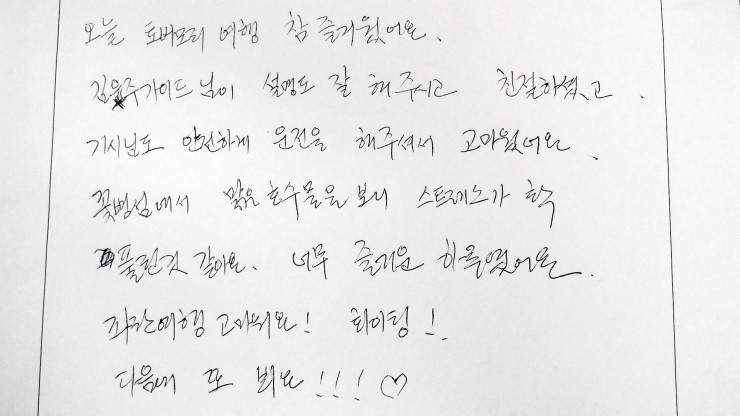 오늘 토버모리 여행 참 즐거웠어요.
김윤주가이드님이 설명도 잘 해주시고 친절하셨고.
기사님도 안전하게 운전을 해주셔서 고마웠어요.
꽃병섬에서 맑은 호수물을 보니 스트레스가 확
풀린것 같아요. 너무 즐거운 하루였어요.
파란여행 고마워요! 화이팅!
다음에 또 봐요!!! ♡